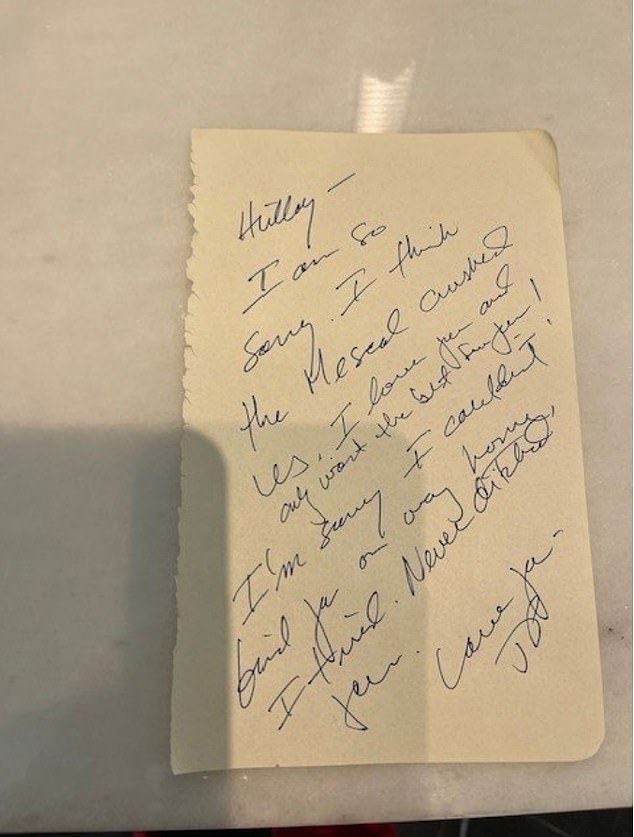 I am so
sorry. I think
the Mescal crushed
us. I love you and
only want the best for you!
I'm sorry I couldn't
find you on way home,
I tried. Never ditched
you. Love you -